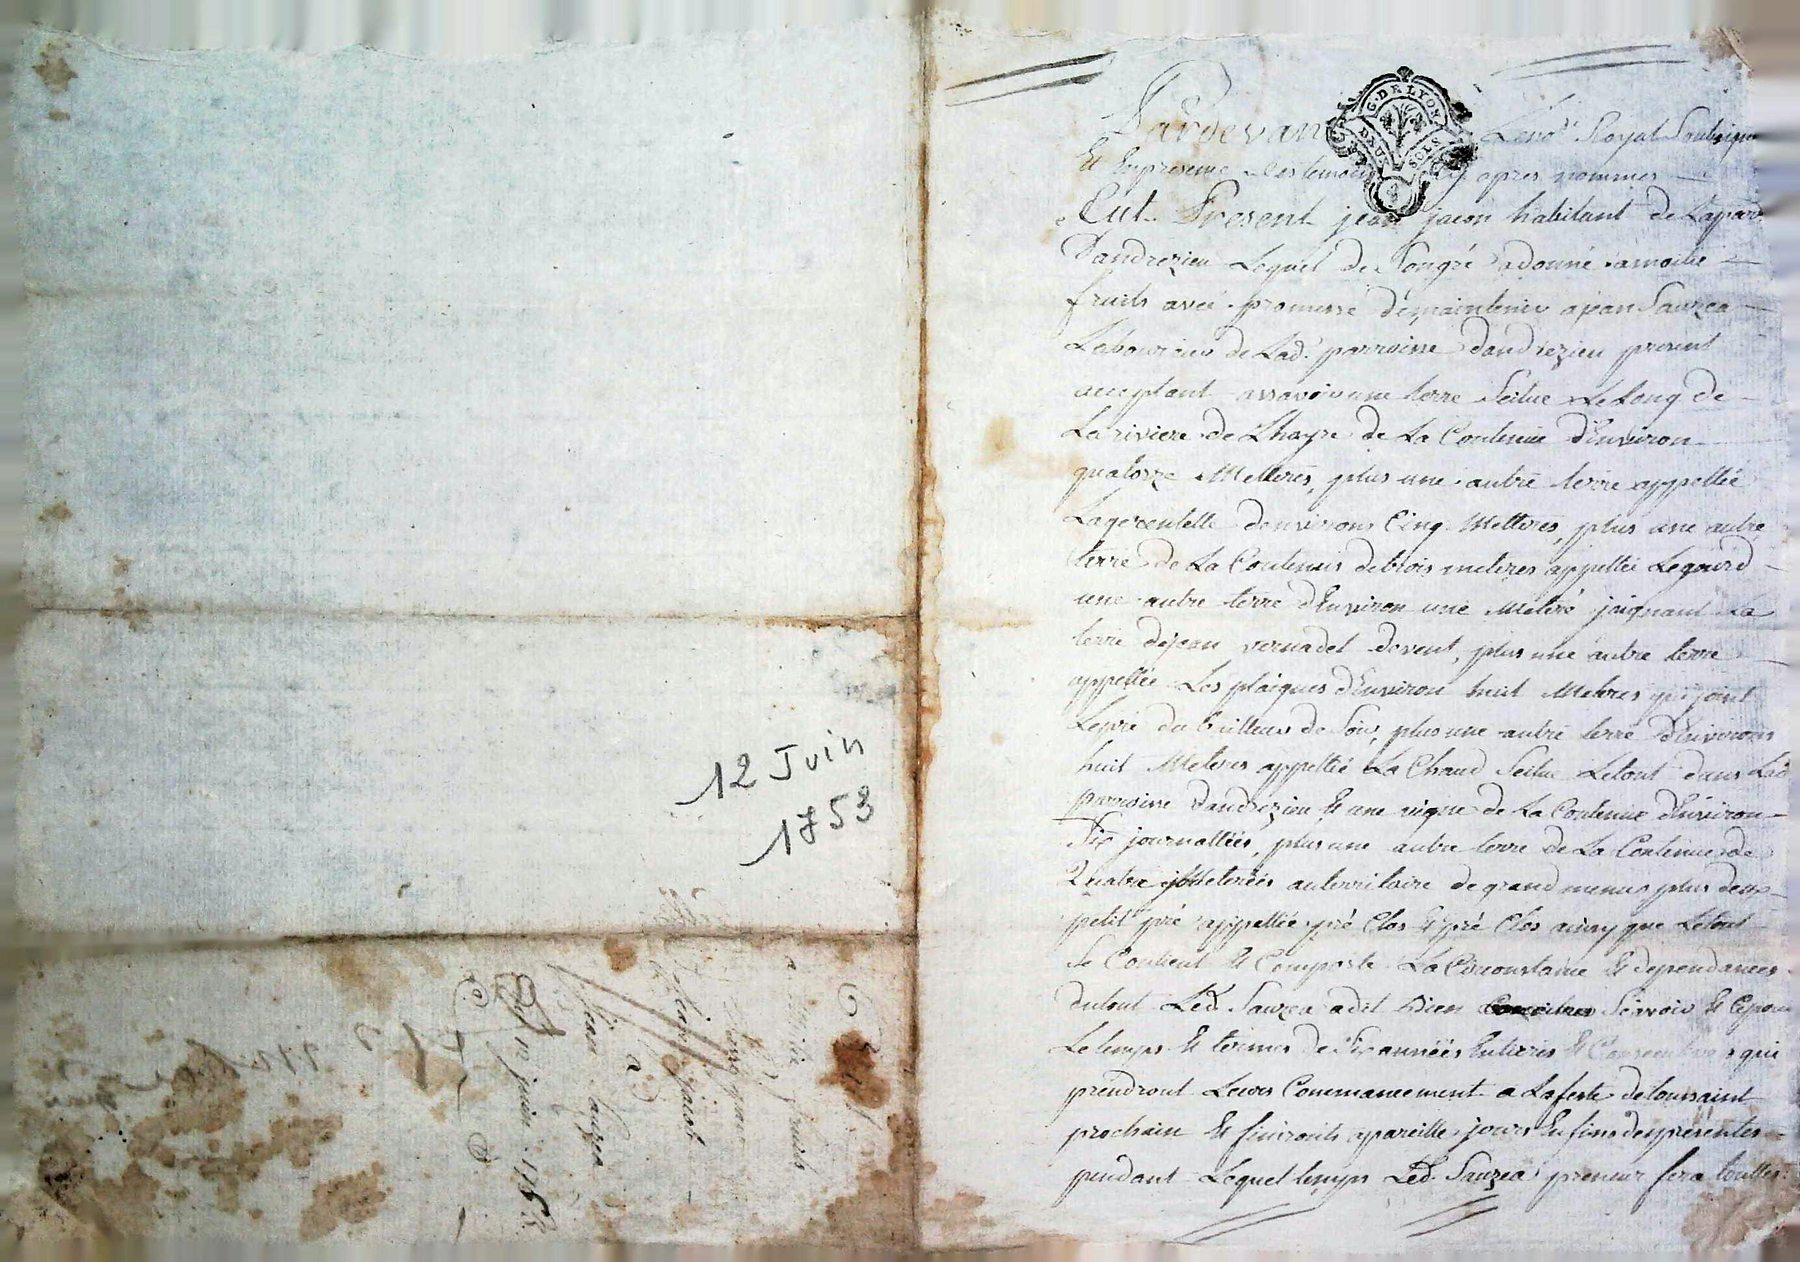 12 Juin
1753
jean jacon
a
jean sauzea
12 juin 1753
G. DE LYON
DEUX SOLS
Pardevant Le no.re Royal Soubsigné
Et En presence des temoins cy apres nommés
Cut Present jean jacon habitant de La parr.
Dandrezieu Lequel de Son gré a donné a moitié
fruits avec promesse de maintenir a jean Sauzea
Laboureur de Lad. parroisse dandrezieu present
acceptant assavoir une terre Scitue Le Long de
La riviere de Lhoyre de La Contenue d'Environ
quatorze Metterés, plus une autre terre appellée
Lagerentelle denvirons Cinq Metterés, plus une autre
terre de La Contenue de trois meterés appellée Le gourd
une autre terre d'Environ une Meteré joignant La
terre de jean vernadet devent, plus une autre terre
appellée Les plaignes d'Environ huit Meteres qui joint
Le pré du tailleur de Soy, plus une autre terre d'Environs
huit Meteres appellée La Chaud Scitue Letout dans Lad.
parroisse dandrezieu Et une vigne de La Contenue d'Environ
Six journallées, plus une autre terre de La Contenue de
Quatre Meterées au territoire de grand menus plus deux
petit pré appellée pré Clos Et pré Clos ainsy que Letout
Se Contient Et Comporte La Circonstance Et dependances
dutout Led. Sauzea a dit Bien Sçavoir Et Ce pour
Le temps Et termes de Six années Entieres Et Consecutives qui
prendront Leurs Commancement a La feste de toussaint
prochain Et finironts a pareille jours En fins des presentes
pendant Lequel temps Led. Sauzea preneur fera touttes